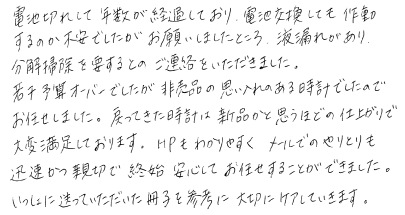 電池切れして年数が経過しており、電池交換しても作動
するのか不安でしたがお願いしましたところ、液漏れがあり、
分解掃除を要するとのご連絡をいただきました。
若干予算オーバーでしたが非売品の思い入れのある時計でしたので
お任せしました。戻ってきた時計は新品かと思うほどの仕上がりで
大変満足しております。HPもわかりやすくメールでのやりとりも
迅速かつ親切で終始安心してお任せすることができました。
いっしょに送っていただいた冊子を参考に大切にケアしていきます。